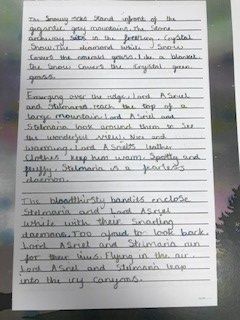 The Snowy rocks Stand infront of the
gigantic grey mountains. The Stone
archway sits in the freezing, Crystal
Snow. The diamond white Snow
Covers the emerald grass. Like a blanket
the Snow Covers the Crystal green
grass.
Emerging over the ridge, Lord Asriel
and Stelmaria reach the top of a
large mountain. Lord Asriel and
Stelmaria look around them to See
the wonderful view. Thick and
warming, Lord Asriel's leather
Clothes keep him warm. Spotty and
fluffy, Stelmaria is a fearless
daemon.
The bloodthirsty bandits enclose
Stelmaria and Lord Asriel
while with their Snarling
daemons. Too afraid to look back
Lord Asriel and Stelmaria run
for their lives. Flying in the air
Lord Asriel and Stelmaria leap
into the icy Canyons.